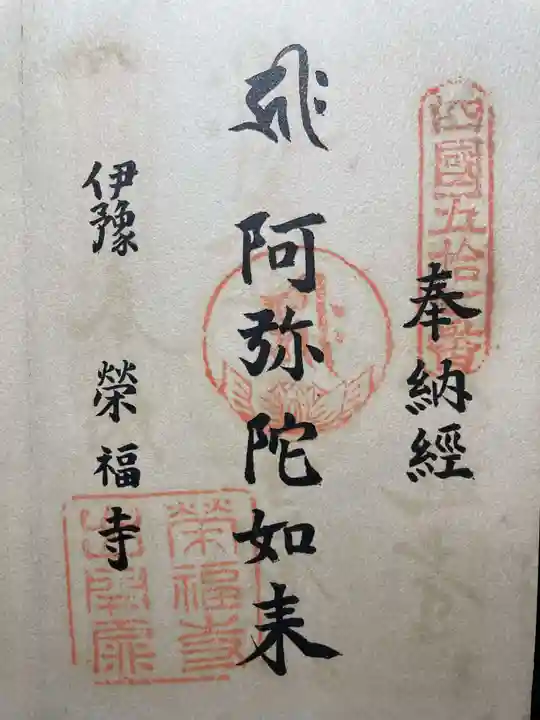 四國五拾七番
奉納經
𑖮𑖿𑖨𑖱𑖾
阿弥陀如来
伊豫 榮福寺
榮福寺